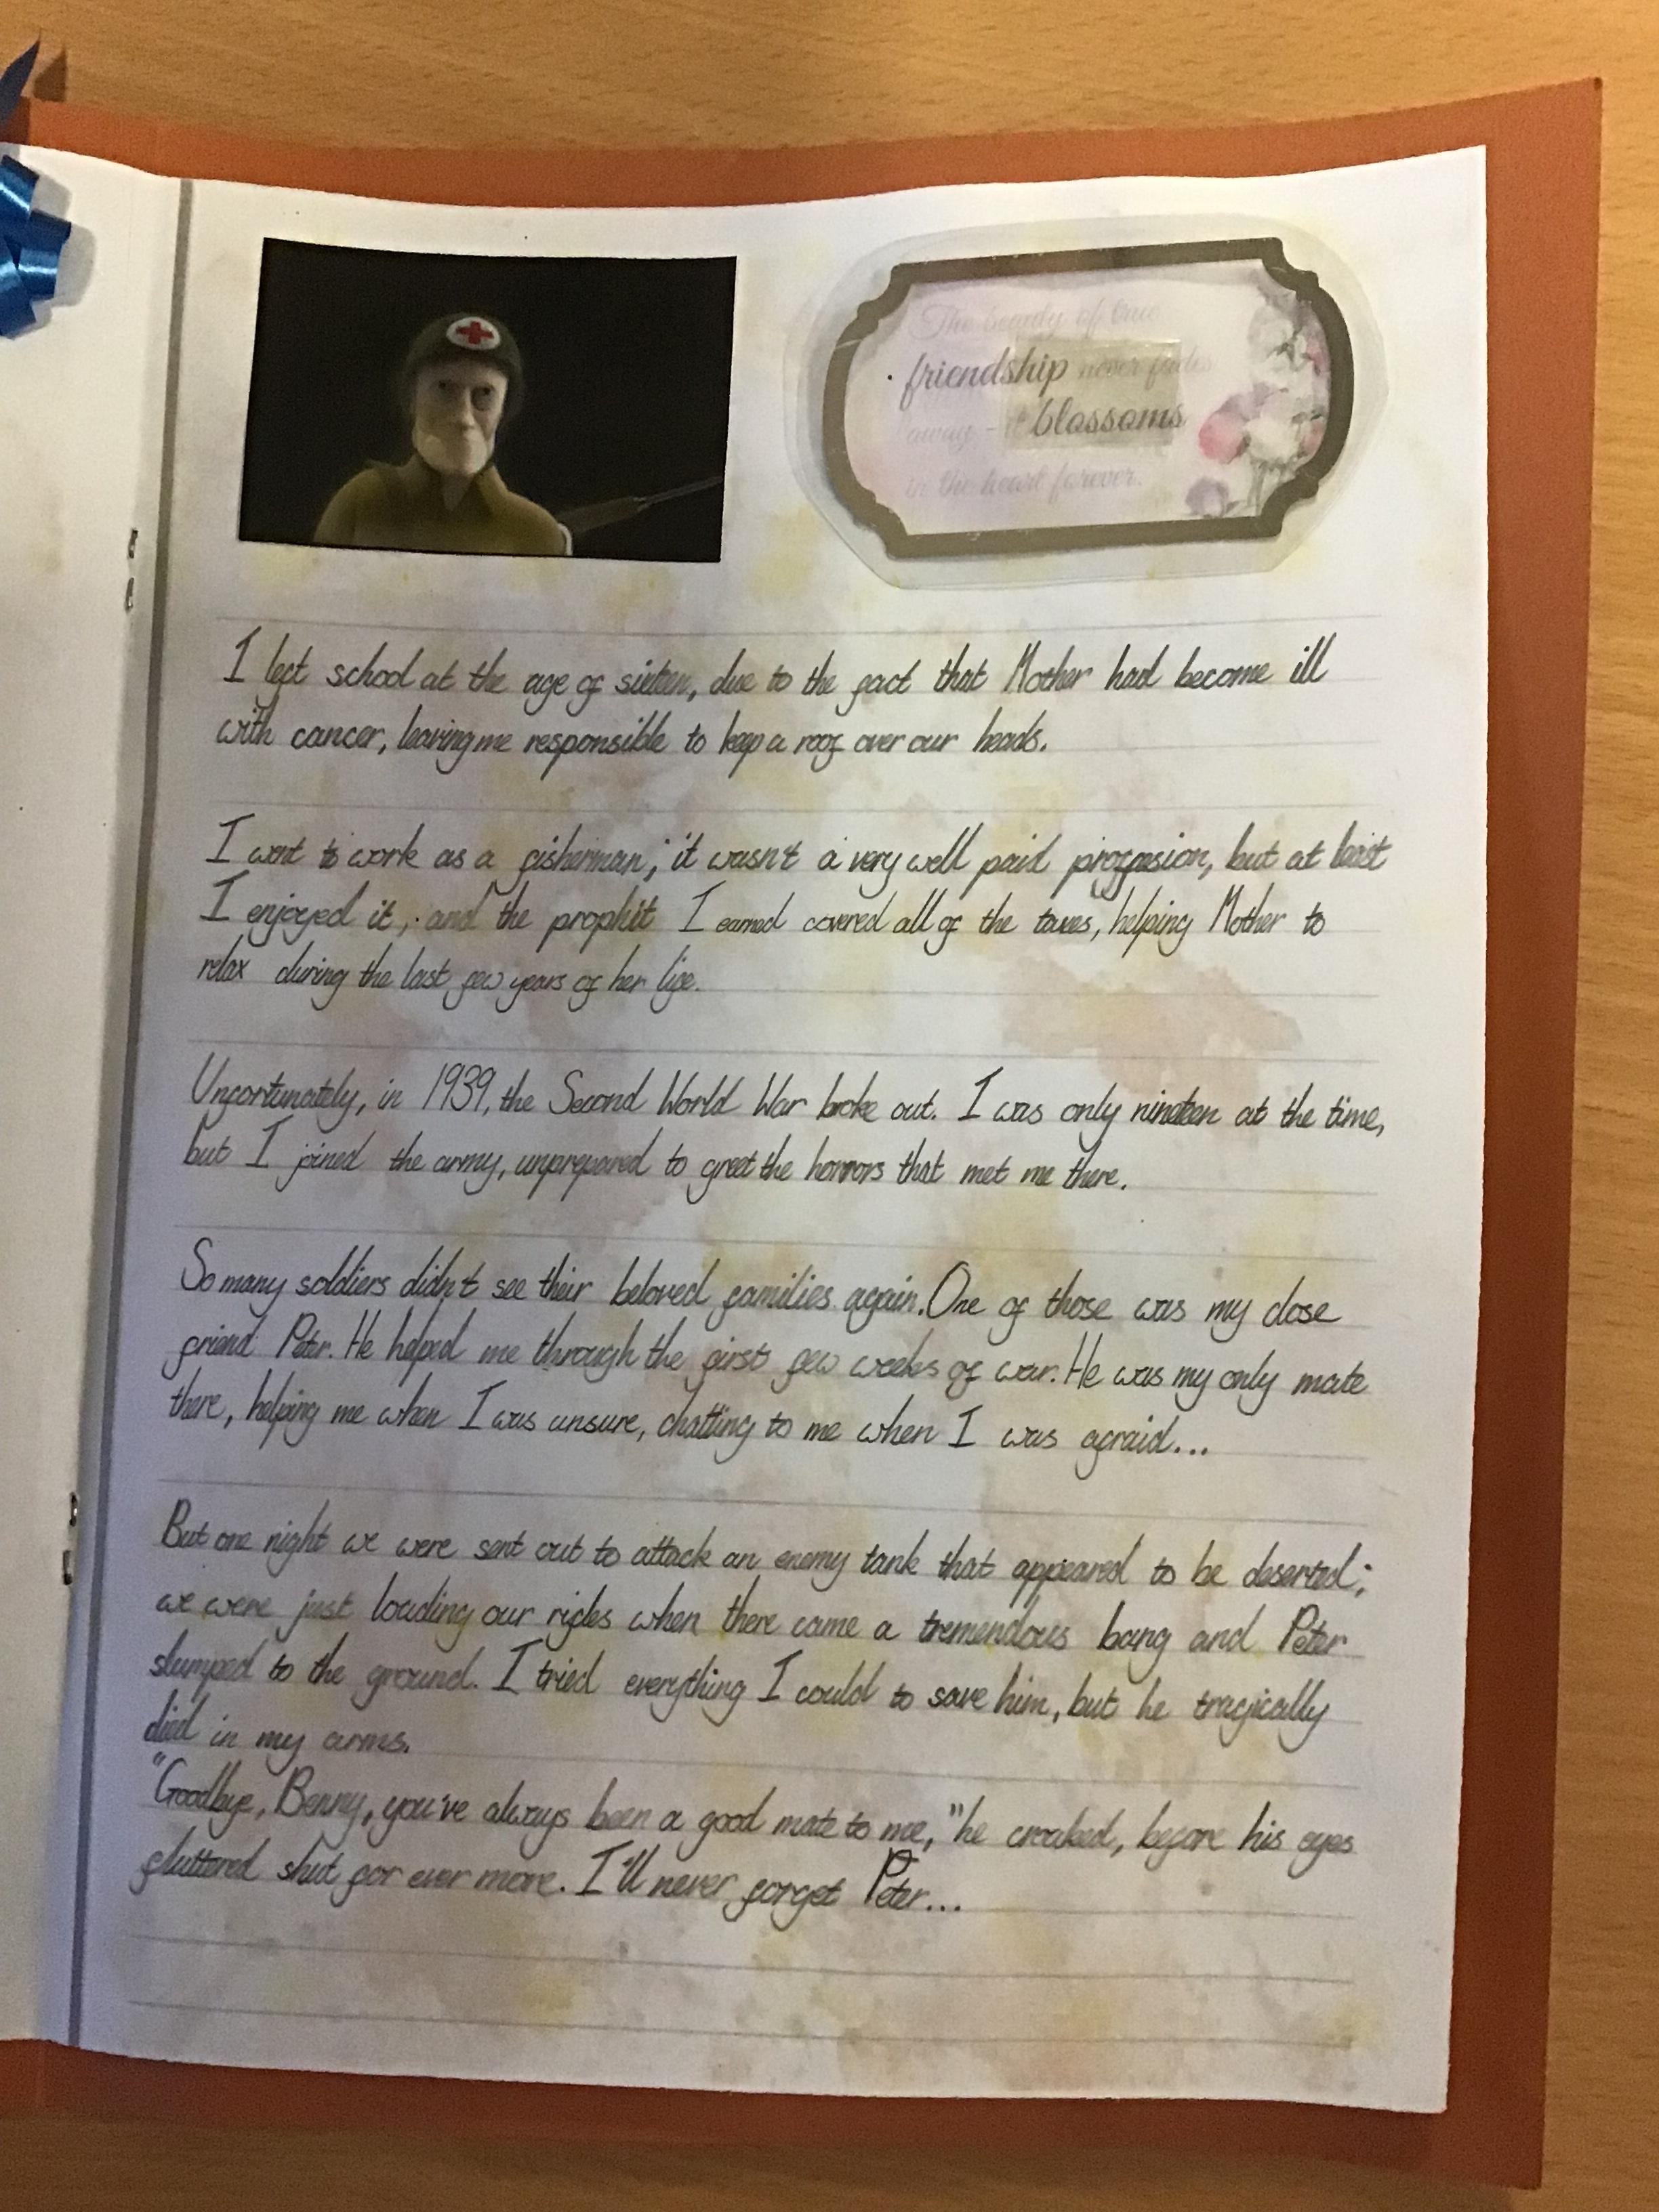 The beauty of true
friendship never fades
away - it blossoms
in the heart forever.
I left school at the age of sixteen, due to the fact that Mother had become ill
with cancer, leaving me responsible to keep a roof over our heads.
I went to work as a fisherman; it wasn't a very well paid proffesion, but at least
I enjoyed it, and the prophit I earned covered all of the taxes, helping Mother to
relax during the last few years of her life.
Unfortunately, in 1939, the Second World War broke out. I was only nineteen at the time,
but I joined the army, unprepared to greet the horrors that met me there.
So many soldiers didn't see their beloved families again. One of those was my close
friend Peter. He helped me through the first few weeks of war. He was my only mate
there, helping me when I was unsure, chatting to me when I was afraid...
But one night we were sent out to attack an enemy tank that appeared to be deserted;
we were just loading our rifles when there came a tremendous bang and Peter
slumped to the ground. I tried everything I could to save him, but he tragically
died in my arms.
"Goodbye, Benny, you've always been a good mate to me," he croaked, before his eyes
fluttered shut for ever more. I'll never forget Peter...